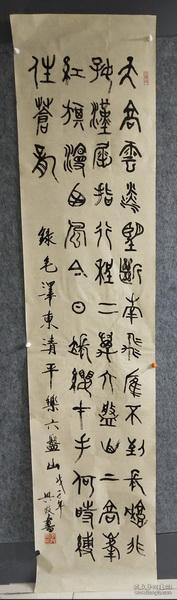 天高雲淡望斷南飛雁不到長城非
好漢屈指行程二萬六盤山上高峰
紅旗漫西風今日長纓在手何時縛
住蒼龍
錄毛澤東清平樂六盤山
年
書